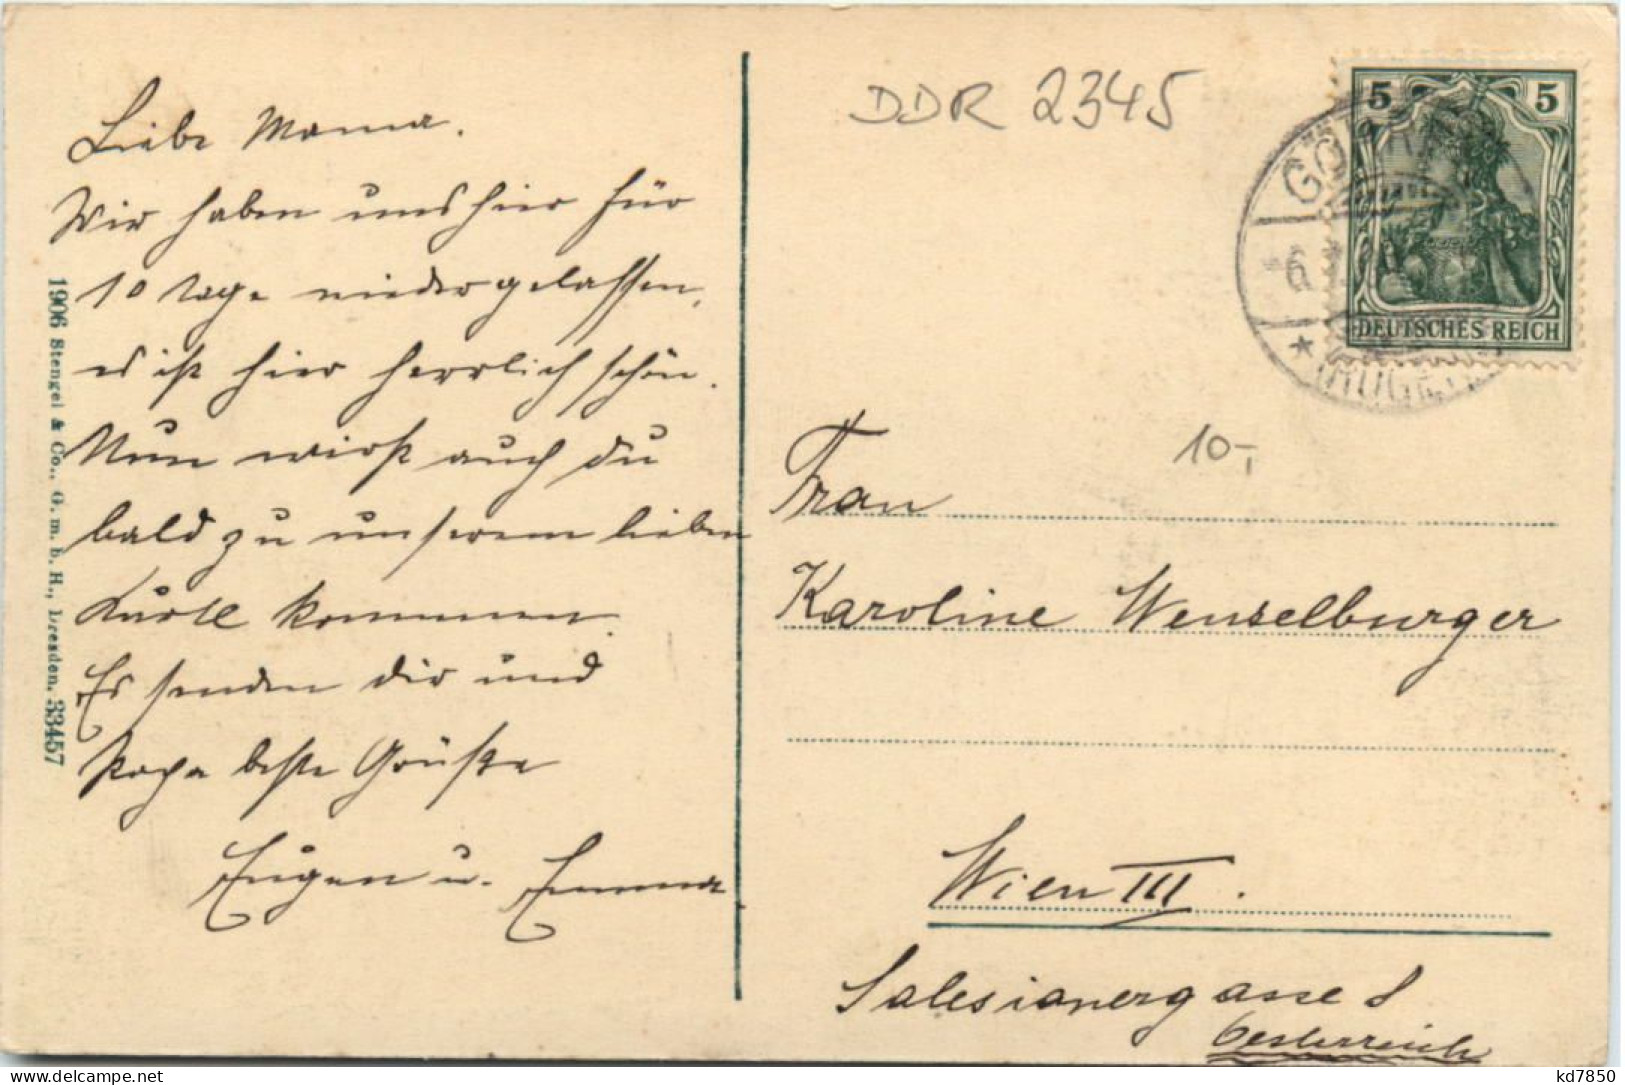 Liebe Mama.
Wir haben uns hier für
10 Tage niedergelassen,
es ist hier herrlich schön.
Nun wirst auch du
bald zu unserem lieben
kommen.
Es senden dir und
Papa beste Grüße
Eugen u. Emma
1906 Stengel & Co., G. m. b. H., Dresden. 33457
DDR 2345
5 5
DEUTSCHES REICH
6.
10,-
Frau
Karoline Wenselburger
Wien III.
Salesianergasse 8
Oesterreich
kd7850